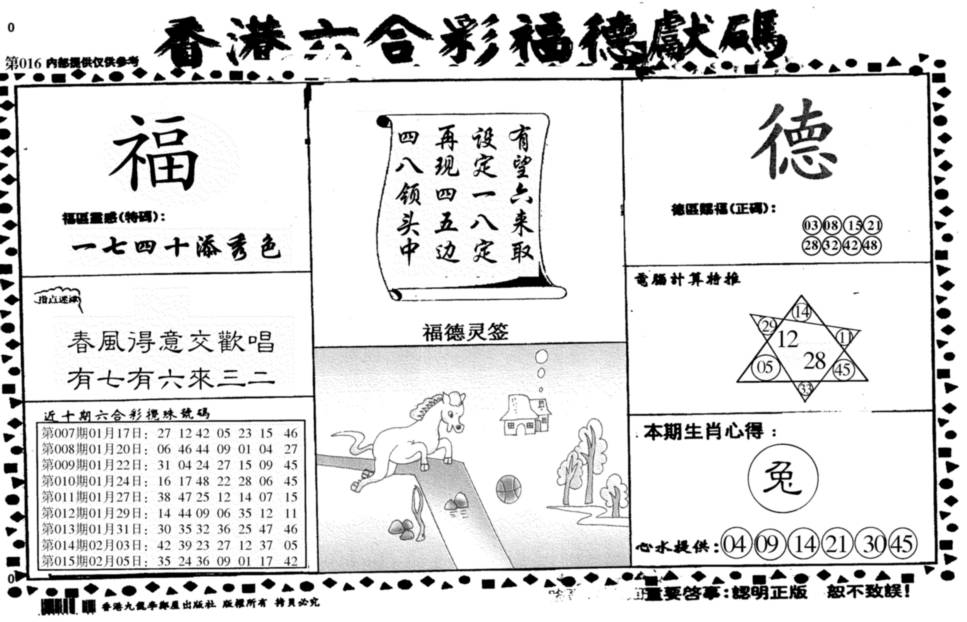 0
香港六合彩福德獻碼
第016 内部提供仅供参考
福
福區靈感(特碼):
一七四十添秀色
指点迷津
春風得意交歡唱
有七有六來三二
近十期六合彩攪珠號碼
第007期01月17日: 27 12 42 05 23 15 46
第008期01月20日: 06 46 44 09 01 04 27
第009期01月22日: 31 04 24 27 15 09 45
第010期01月24日: 16 17 48 22 28 06 45
第011期01月27日: 38 47 25 12 14 07 15
第012期01月29日: 14 44 09 06 35 12 11
第013期01月31日: 30 35 32 36 25 47 46
第014期02月03日: 42 39 23 27 12 37 05
第015期02月05日: 35 24 36 09 01 17 42
有望六来取
设定一八定
再现四五边
四八领头中
福德灵签
德
德區賜福(正碼):
03 08 15 21
28 32 42 48
電腦計算特推
14
29 12 11
28
05 45
33
本期生肖心得:
兔
心水提供: 04 09 14 21 30 45
0
香港九龍李鄭屋出版社 版權所有 拷貝必究
重要啓事:認明正版 恕不致誤!